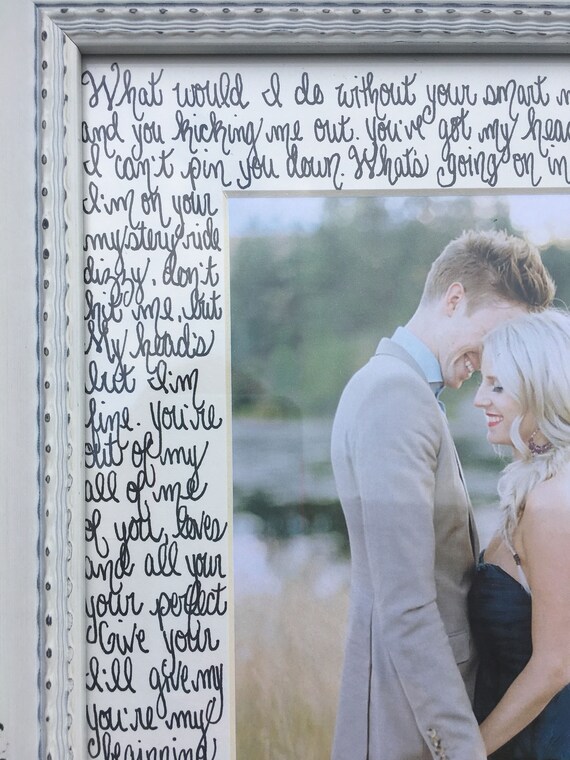 What would I do without your smart m
and you kicking me out. you've got my head
I can't pin you down. What's going on in
I'm on your
mystery ride
dizzy, don't
hit me, but
My head's
but I'm
fine. you're
out of my
all of me
of you, loves
and all your
your perfect
Give your
I'll give my
you're my
beginning